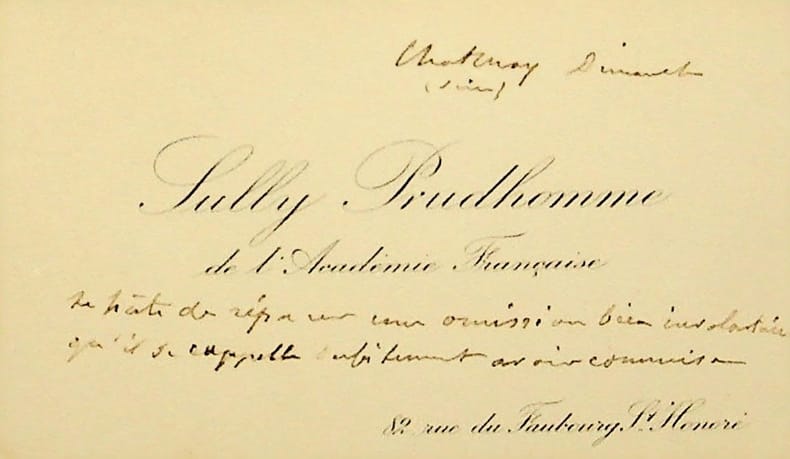 Chatenay Dimanche
(Seine)
Sully Prudhomme
de l'Académie Française
se hâte de réparer une omission bien involontaire
qu'il se rappelle subitement avoir commise
82 rue du Faubourg St. Honoré